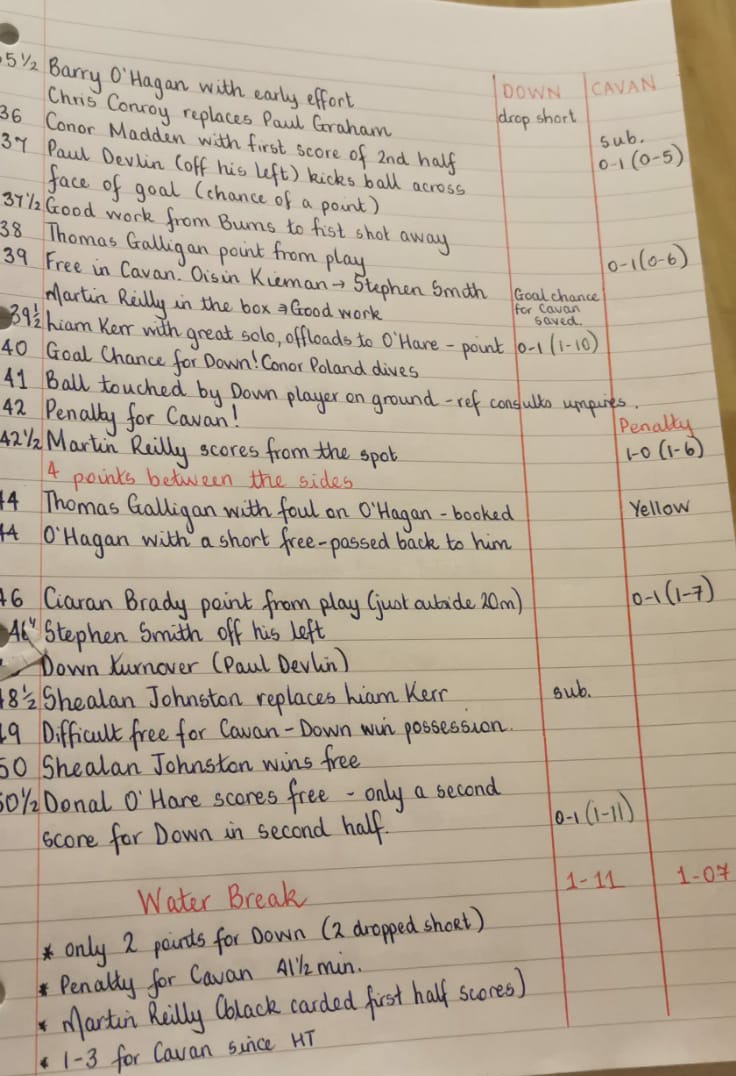 DOWN CAVAN
5½ Barry O'Hagan with early effort drop short
Chris Conroy replaces Paul Graham sub.
36 Conor Madden with first score of 2nd half 0-1 (0-5)
37 Paul Devlin (off his left) kicks ball across
face of goal (chance of a point)
37½ Good work from Burns to fist shot away
38 Thomas Galligan point from play 0-1 (0-6)
39 Free in Cavan. Oisin Kiernan → Stephen Smith Goal chance
Martin Reilly in the box → Good work for Cavan
saved.
39½ Liam Kerr with great solo, offloads to O'Hare - point 0-1 (1-10)
40 Goal Chance for Down! Conor Poland dives
41 Ball touched by Down player on ground - ref consults umpires.
42 Penalty for Cavan! Penalty
42½ Martin Reilly scores from the spot 1-0 (1-6)
4 points between the sides
44 Thomas Galligan with foul on O'Hagan - booked Yellow
44 O'Hagan with a short free - passed back to him
46 Ciaran Brady point from play (just outside 20m) 0-1 (1-7)
Stephen Smith off his left
Down turnover (Paul Devlin)
48½ Shealan Johnston replaces Liam Kerr sub.
49 Difficult free for Cavan - Down win possession.
50 Shealan Johnston wins free
50½ Donal O'Hare scores free - only a second
score for Down in second half. 0-1 (1-11)
Water Break 1-11 1-07
* only 2 points for Down (2 dropped short)
* Penalty for Cavan 41½ min.
* Martin Reilly (black carded first half scores)
* 1-3 for Cavan since HT